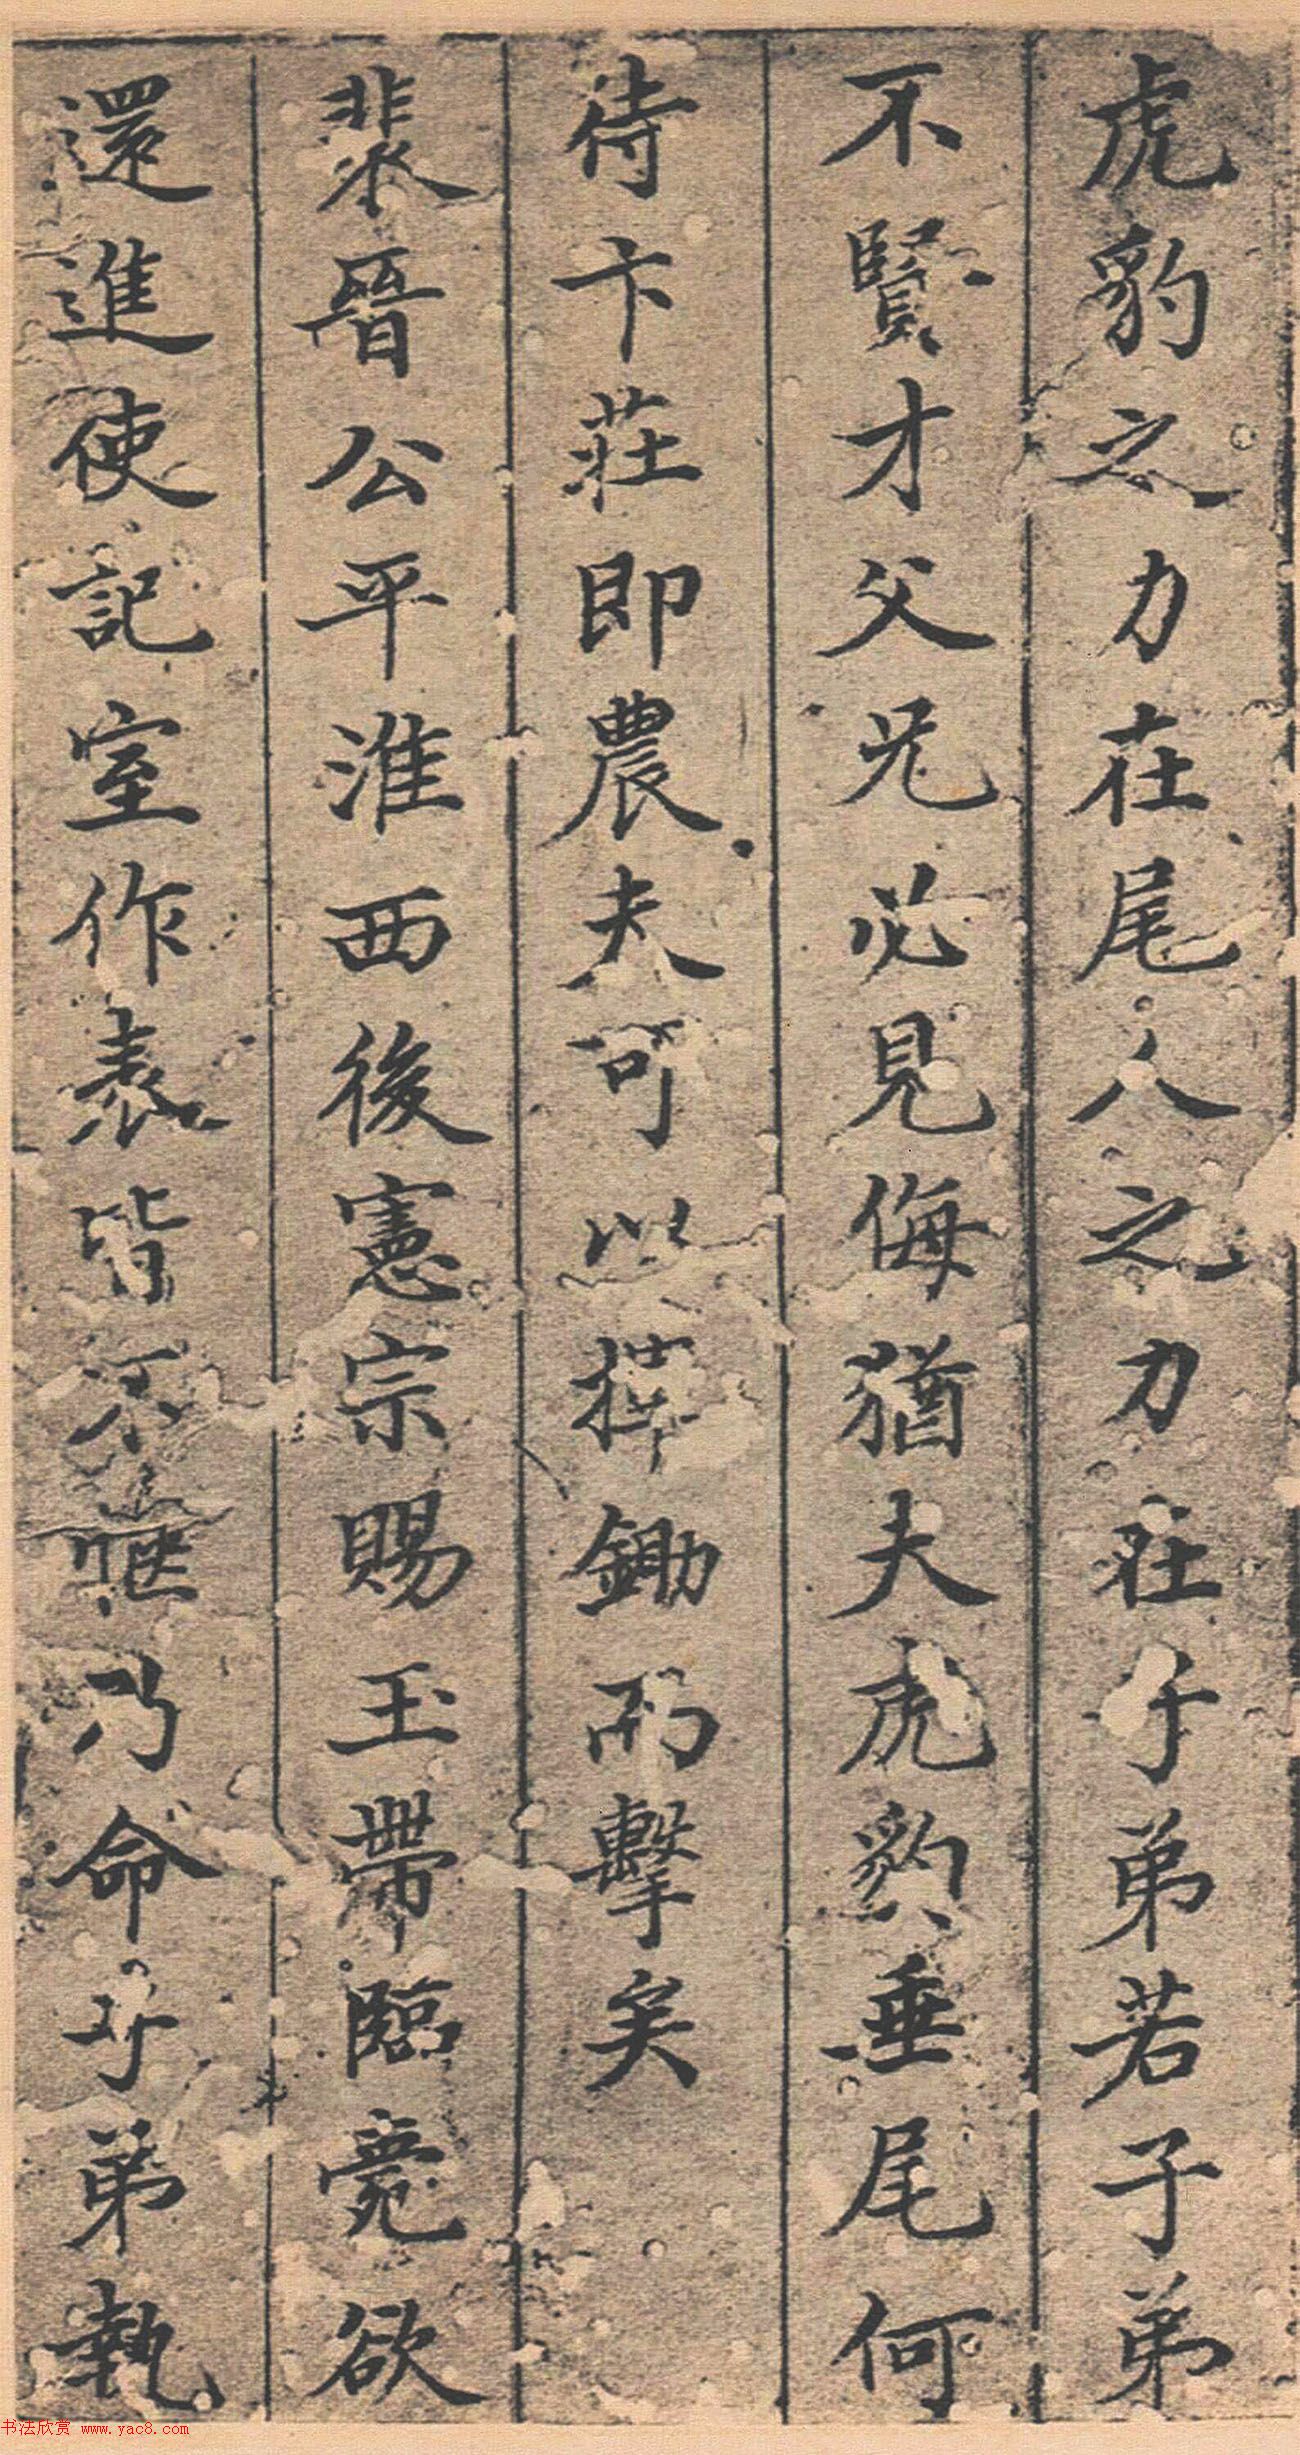 虎豹之力在尾人之力在子弟若子弟
不賢才父兄必見侮猶夫虎豹垂尾何
待卞莊即農夫可以揮鋤而擊矣
裴晉公平淮西後憲宗賜玉帶臨薨欲
還進使記室作表皆不愜乃命子弟執
书法欣赏 www.yac8.com